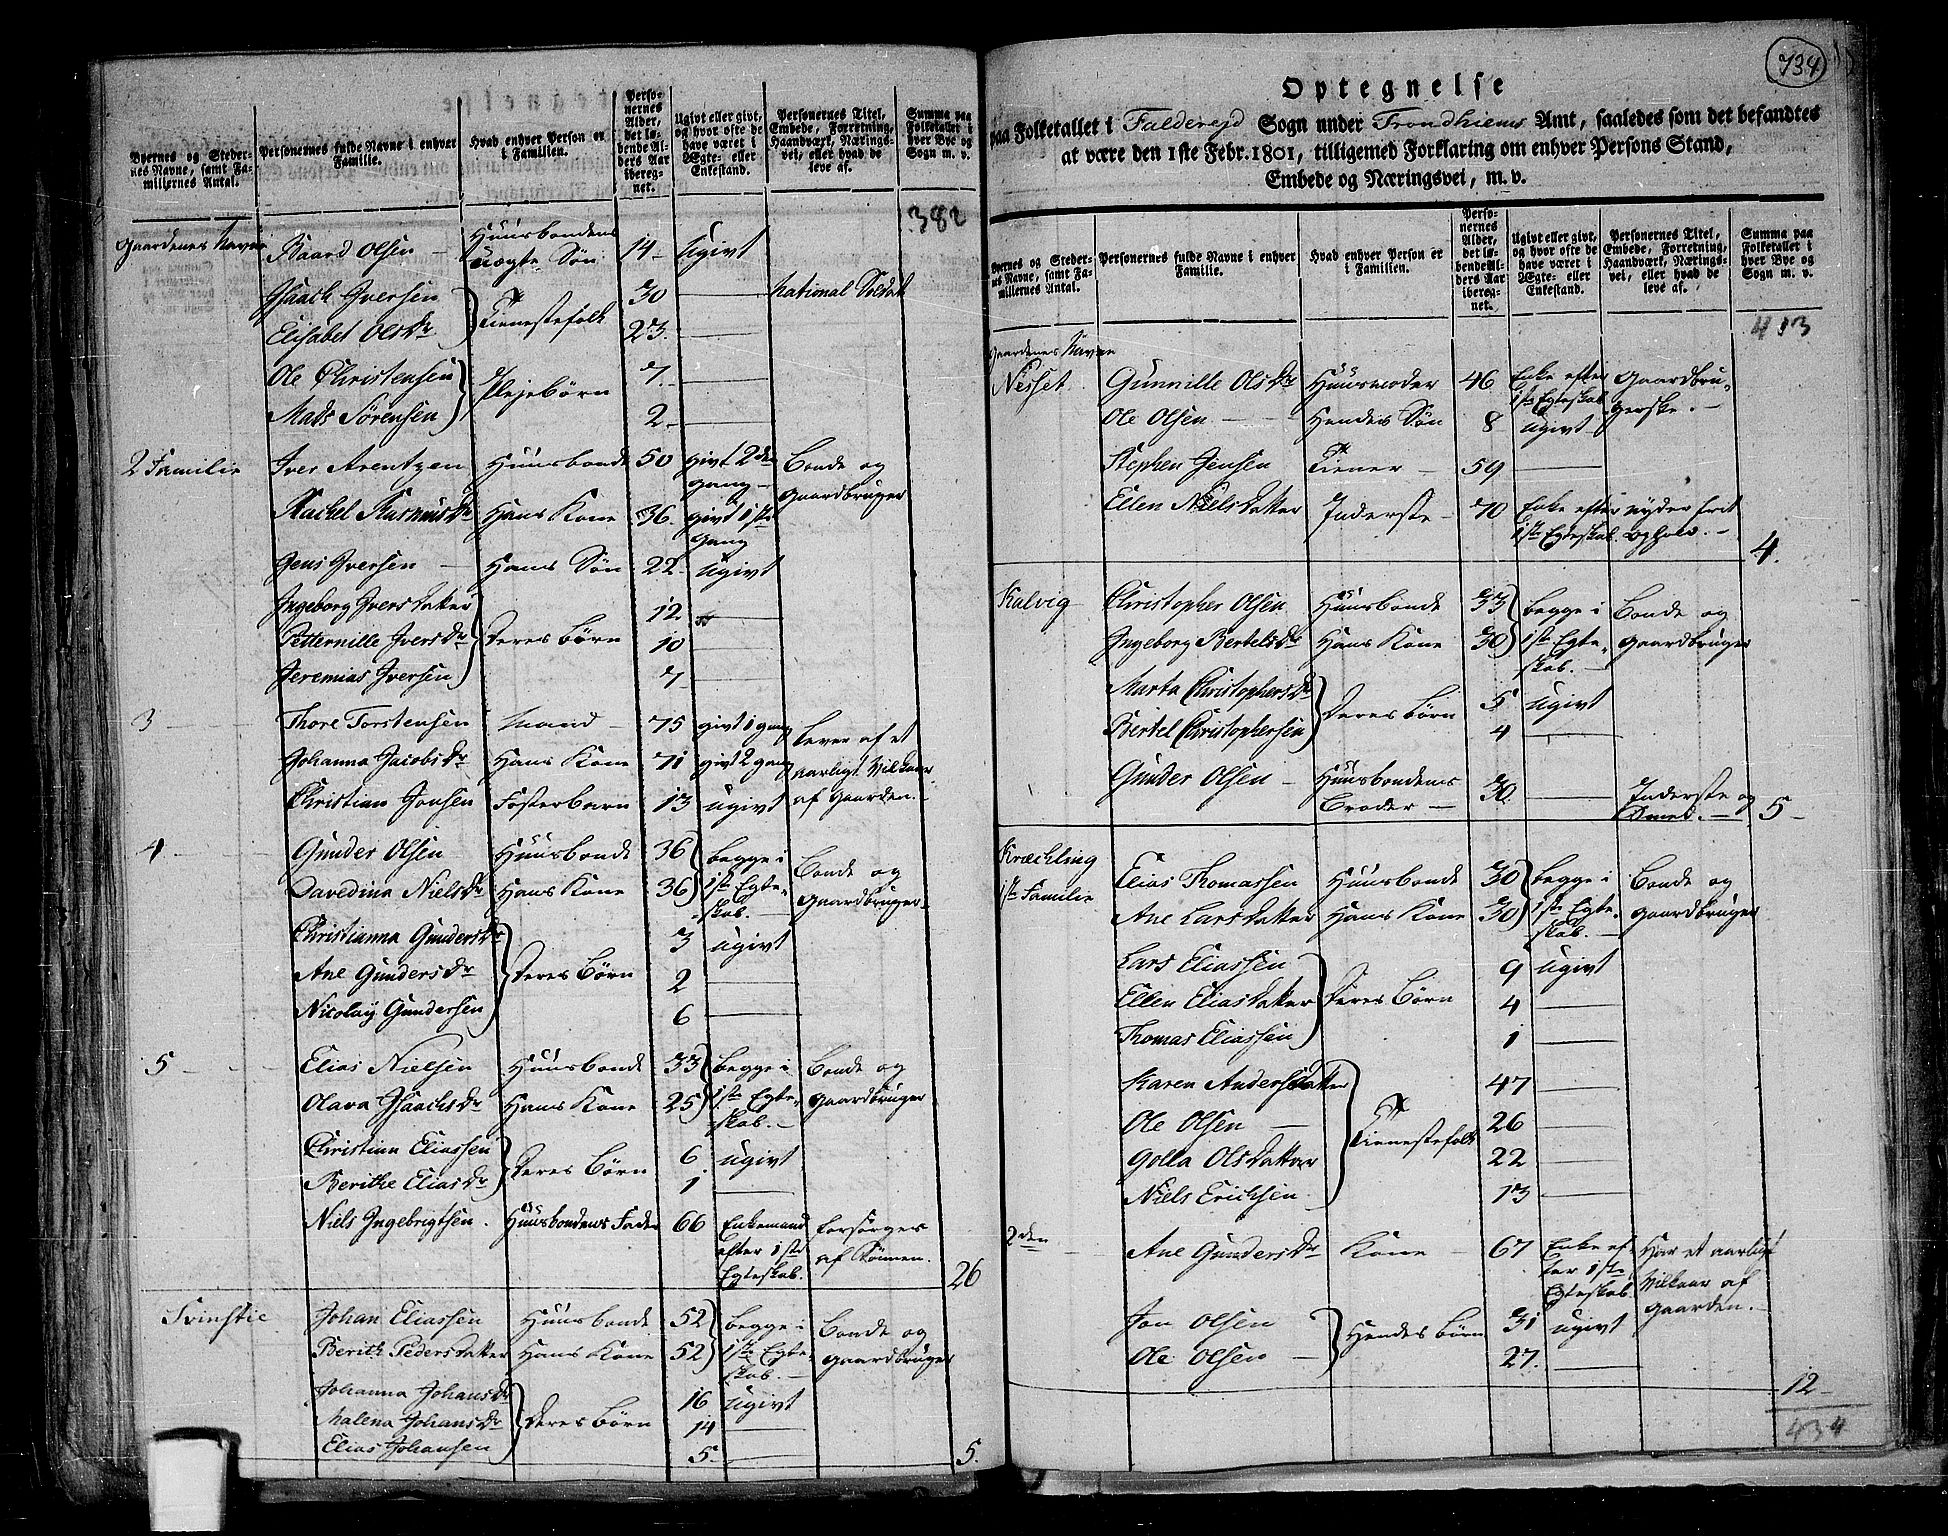 Byernes og Steder-
nes Navne, samt Fa-
miliernes Antal.
Personernes fulde Navne i enhver
Familie.
Hvad enhver Person er
i Familien.
Perso-
nernes
Alder,
det lø-
bende Al-
ders Aar
ibereg-
net.
Ugivt eller givt,
og hvor ofte de
have været i
Ægte- eller
Enkestand.
Personernes Titel,
Embede, Forretning,
Haandværk, Nærings-
vei, eller hvad de
leve af.
Summa paa
Folketallet i
hver Bye og
Sogn m. v.
382
Gaardenes Navne Baard Olsen – Huusbondens uægte Søn 14 – ugivt
Isaach Iversen } Tienestefolk 30 —— National Soldat
Elisabet Olsdr 23. ——
Ole Christensen } Plejebørn 7. ——
Mads Sørensen 2 – ——
2 Familie Iver Arentzen Huusbonde 50 givt 2den gang – Bonde og Gaardbruger
Rachel Rasmusdr Hans Kone 36. givt 1ste gang
Jens Iversen – Hans Søn 22 – ugivt
Ingeborg Iversdatter } Deres Børn 12 – ——
Petternille Iversdr 10 ——
Jeremias Iversen 7 ——
3 Thore Torstensen Mand – 75 givt 1 gang Lever af et
Johanna Jacobsdr Hans Kone 71 givt 2 gang aarligt Vilkaar
Christian Jonsen Fosterbarn 13 ugivt af Gaarden. –
4 – Gunder Olsen Huusbonde 36 } begge i 1ste Egteskab. – Bonde og
Davedina Nielsdr Hans Kone 36 Gaardbruger.
Christianna Gundersdr } Deres Børn 3 ugivt
Ane Gundersdr 2 ——
Nicolay Gundersen 6 ——
5 – Elias Nielsen Huusbonde 33 } begge i 1ste Egteskab. – Bonde og
Olava Isaachsdr Hans Kone 25 Gaardbruger
Christian Eliassen } Deres Børn 6 ugivt
Berithe Eliasdr 1 ——
Niels Ingebrigtsen. Huusbondens Fader 66 Enkemand efter 1ste Egteskab. forsørges af Sønnen. 26
Svinstie Johan Eliassen Huusbonde 52 } begge i 1ste Egteskab. – Bonde og
Berith Pedersdatter Hans Kone 52 Gaardbruger
Johanna Johansdr } Deres Børn 16 ugivt
Malena Johansdr 14 ——
Elias Johansen 5. —— 5.
734
Optegnelse
paa Folketallet i Falderejd Sogn under Trondhiems Amt, saaledes som det befandtes
at være den 1ste Febr. 1801, tilligemed Forklaring om enhver Persons Stand,
Embede og Næringsvei, m. v.
Byernes og Steder-
nes Navne, samt Fa-
miliernes Antal.
Personernes fulde Navne i enhver
Familie.
Hvad enhver Person er
i Familien.
Perso-
nernes
Alder,
det lø-
bende Al-
ders Aar
ibereg-
net.
Ugivt eller givt,
og hvor ofte de
have været i
Ægte- eller
Enkestand.
Personernes Titel,
Embede, Forretning,
Haandværk, Nærings-
vei, eller hvad de
leve af.
Summa paa
Folketallet i
hver Bye og
Sogn m. v.
413
Gaardenes Navne
Nesset Gunnille Olsdr Huusmoder 46 Enke efter 1ste Egteskab Gaardbru-
Ole Olsen – Hendes Søn 8 ugivt gerske. –
Stephen Jensen Tiener – 59 ——
Ellen Nielsdatter Inderste – 70 Enke efter 1ste Egteskab nyder frit Ophold. – 4.
Kalvig Christopher Olsen Huusbonde 33 } begge i 1ste Egteskab. – Bonde og
Ingeborg Bertelsdr Hans Kone 30 Gaardbruger
Marta Christophersdr } Deres Børn 5 ugivt
Bertel Christophersen 4 ——
Gunder Olsen – Huusbondens Broder – 30. —— Inderste og Smed. – 5 –
Kræchling
1ste Familie Elias Thomassen Huusbonde 30 } begge i 1ste Egteskab. – Bonde og
Ane Larsdatter Hans Kone 30 Gaardbruger
Lars Eliassen } Deres Børn 9 ugivt
Ellen Eliasdatter 4 ——
Thomas Eliassen 1 ——
Karen Andersdatter } Tienestefolk 47 ——
Ole Olsen – 26 ——
Golla Olsdatter 22 ——
Niels Erichsen. 13 ——
2den Ane Gundersdr Kone – 67 Enke efter 1ste Egteskab Har et aarligt Vilkaar af Gaarden. –
Jon Olsen } Hendes Børn 31 ugivt
Ole Olsen – 27. ——
12 –
434